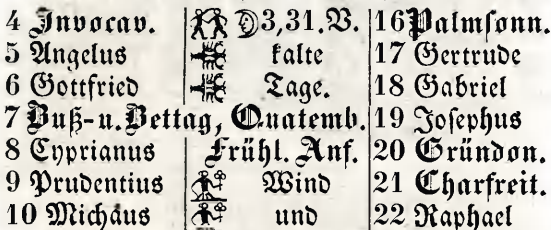 4 Invocav. 3,31.V. 16 Palmsonn.
5 Angelus kalte 17 Gertrude
6 Gottfried Tage. 18 Gabriel
7 Buß- u. Bettag, Quatemb. 19 Josephus
8 Cyprianus Frühl. Anf. 20 Gründon.
9 Prudentius Wind 21 Charfreit.
10 Michäus und 22 Raphael